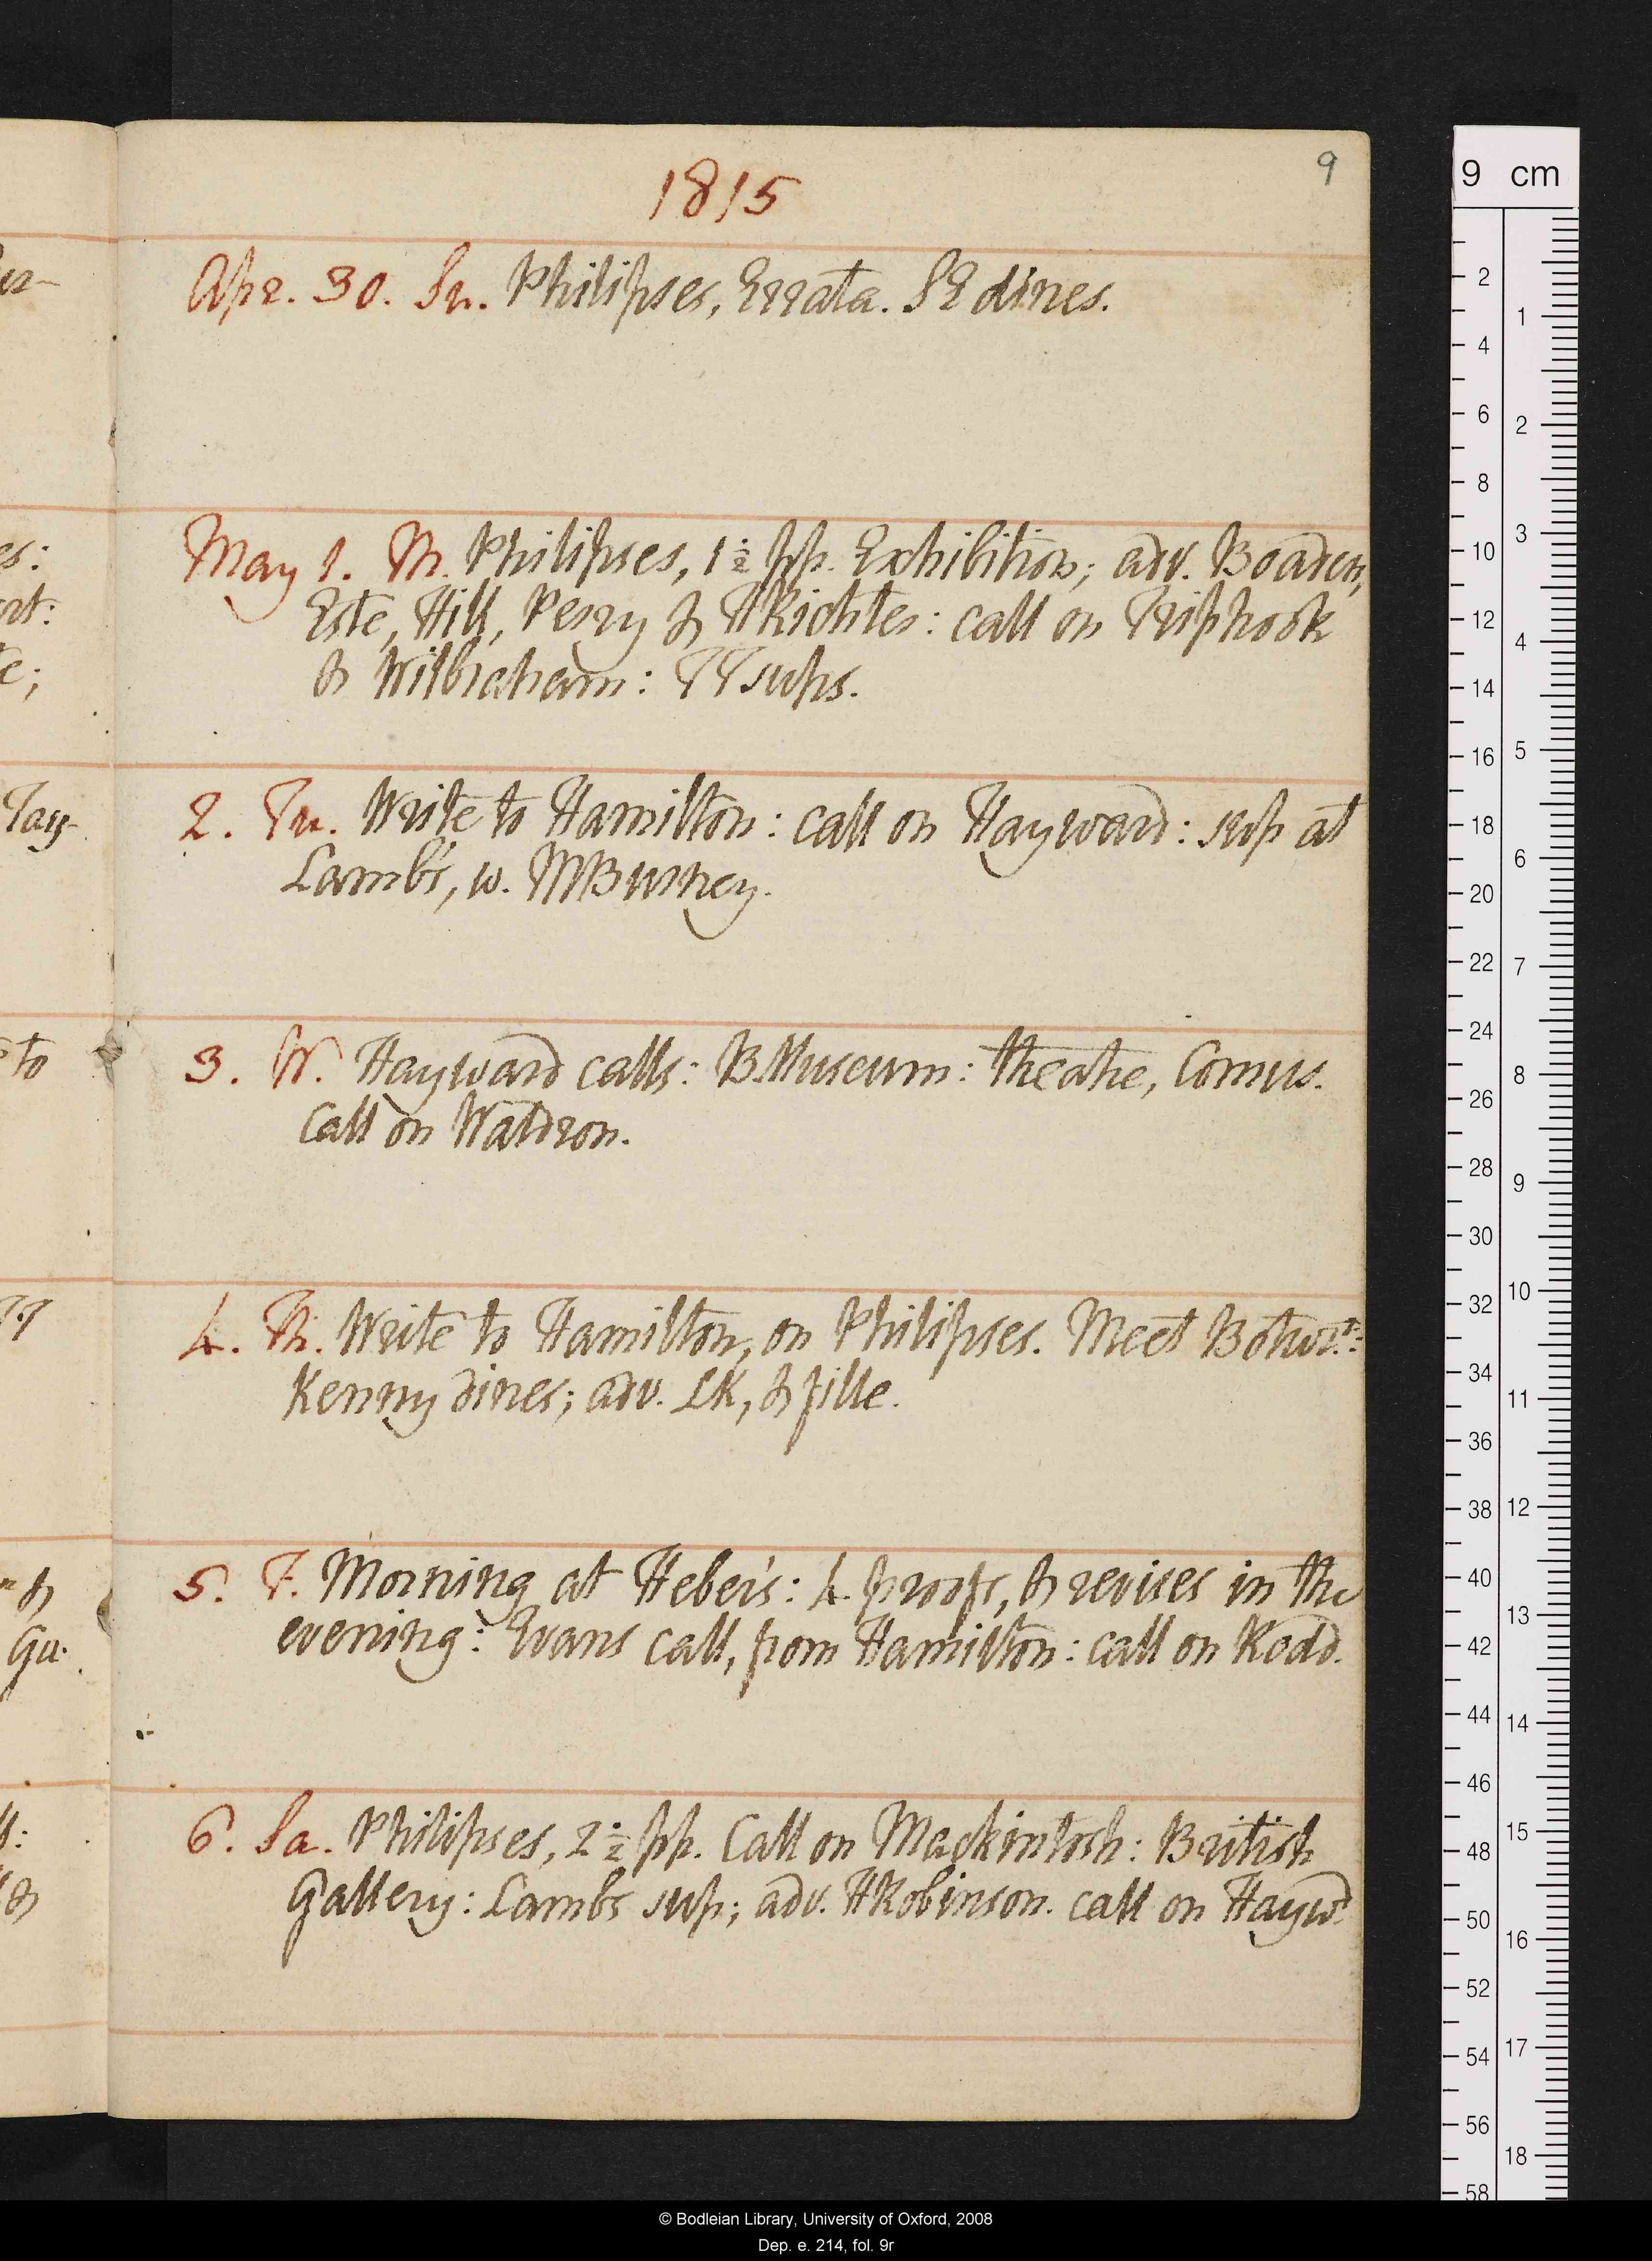 1815
9
Apr. 30. Su. Philipses, Errata. SE dines.
May 1. M. Philipses, 1½ pp. Exhibition; adv. Boaden,
Este, Hill, Perry & HRichter: call on Triphook
& Wilbraham: TT sups.
2. Tu. Write to Hamilton: call on Hayward: sup at
Lamb's, w. MBurney.
3. W. Hayward calls: B.Museum: theatre, Comus.
Call on Waldron.
4. Th. Write to Hamilton, on Philipses. Meet Bothwr:
Kenny dines; adv. LK, & fille.
5. F. Morning at Heber's: 4 proofs, & revises in the
evening: Evans call, from Hamilton: call on Rodd.
6. Sa. Philipses, 2½ pp. Call on Mackintosh: British
Gallery: Lambs sup; adv. HRobinson. call on Haywd
es:
rt:
te;
Tay-
to
TT
&
Gu.
&
9 cm
2
4
6
8
10
12
14
16
18
20
22
24
26
28
30
32
34
36
38
40
42
44
46
48
50
52
54
56
58
1
2
3
4
5
6
7
8
9
10
11
12
13
14
15
16
17
18
© Bodleian Library, University of Oxford, 2008
Dep. e. 214, fol. 9r